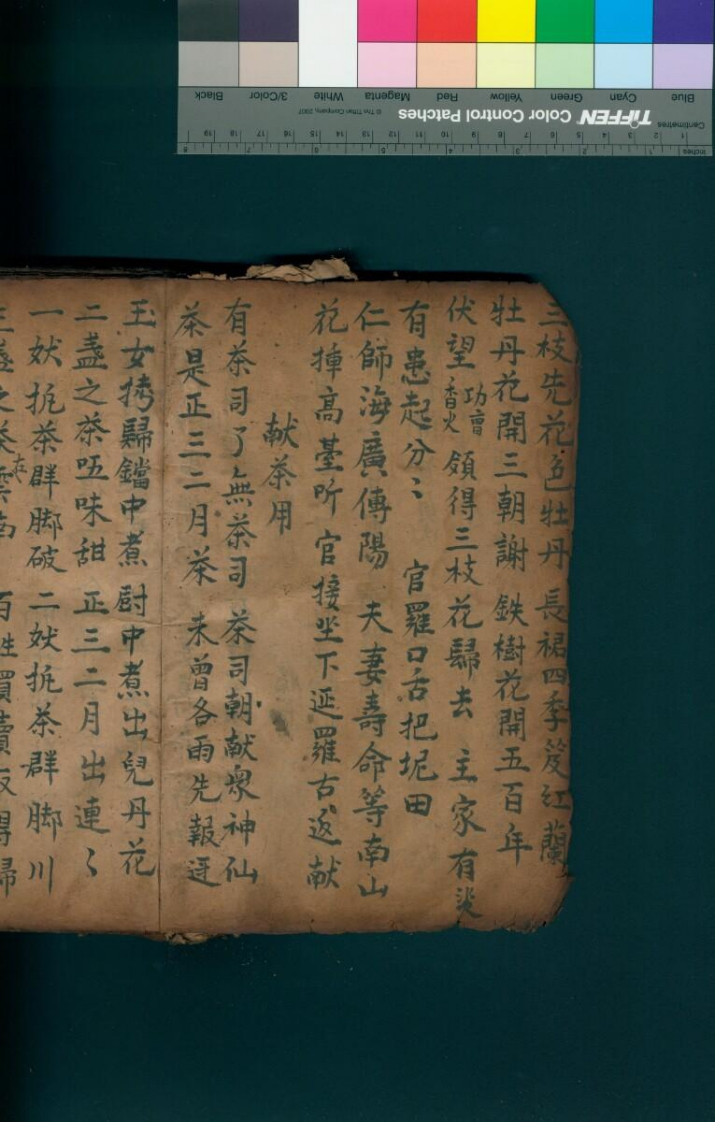 三枝先花色牡丹 長裙四季 紅蘭
牡丹花開三朝謝 鉄樹花開五百年
伏望 功曹 香火 領得三枝花歸去 主家有災
有患起分〻 官羅口舌把坭田
仁師海廣傳陽 夫妻壽命等南山
花捧高臺所 官接坐下延羅古返献
献茶用
有茶司了無茶司 茶司朝献衆神仙
茶是正三二月茶 未曾各雨先報
玉女 歸鐺中煮 厨中煮出兒丹花
二盞之茶吅味甜 正三二月出連〻
一妖扼茶群脚破 二妖扼茶群脚川
Black
3/Color
White
Magenta
Red
Yellow
Green
Cyan
Blue
© The Tiffen Company, 2007
TIFFEN Color Control Patches
Centimetres
1 2 3 4 5 6 7 8 9 10 11 12 13 14 15 16 17 18 19
Inches
1 2 3 4 5 6 7 8